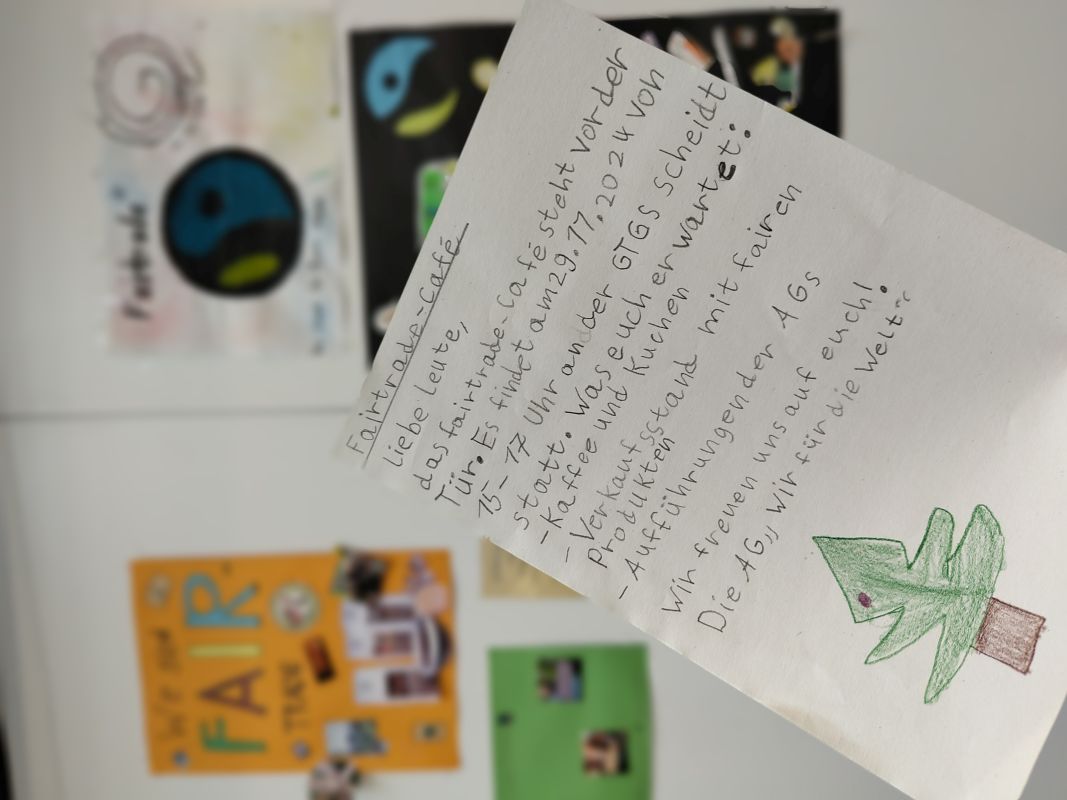 Fairtrade-Café
Liebe Leute,
das fairtrade-Café steht vor der
Tür. Es findet am 29.11.2024 von
15-17 Uhr an der GTGS Scheidt
statt. Was euch erwartet:
- Kaffee und Kuchen
- Verkaufsstand mit fairen
Produkten
- Aufführungen der AGs
Wir freuen uns auf euch!
Die AG „Wir für die Welt“
FAIR